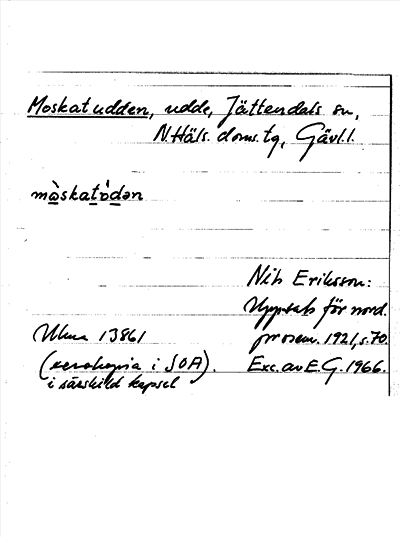 Moskatudden, udde, Jättendals sn,
N.Häls. doms.tg, Gävl.l.
mòskatὸdən
Nils Eriksson:
Uppsats för nord.
prosem. 1921, s.70.
Exc. av E.G. 1966.
Ulma 13861
(xerokopia i SOA).
i särskild kapsel